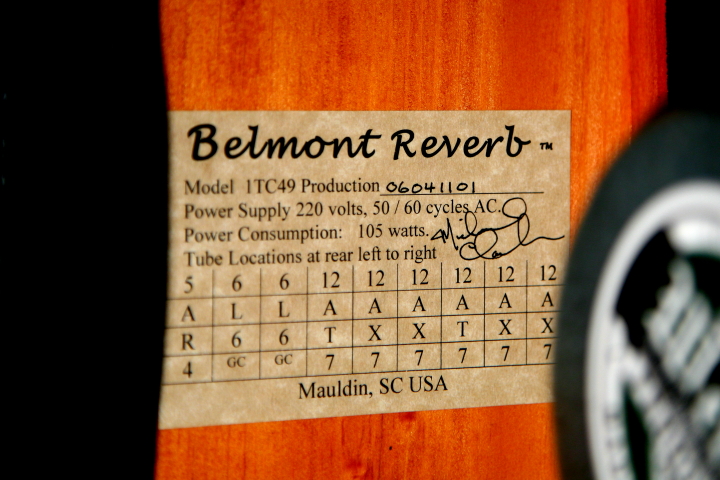 Belmont Reverb ™
Model 1TC49 Production 06041101
Power Supply 220 volts, 50 / 60 cycles AC.
Power Consumption: 105 watts.
Tube Locations at rear left to right
5 6 6 12 12 12 12 12 12
A L L A A A A A A
R 6 6 T X X T X X
4 GC GC 7 7 7 7 7 7
Mauldin, SC USA